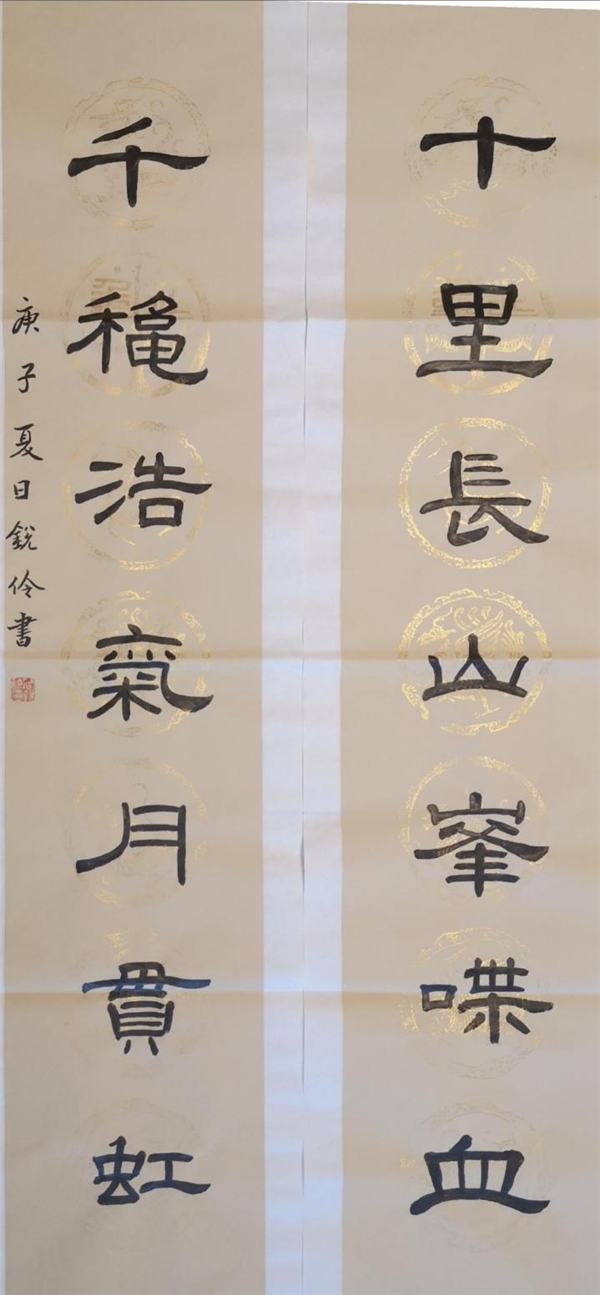 十里長山峯喋血
千穐浩氣月貫虹
庚子夏日銳伶書